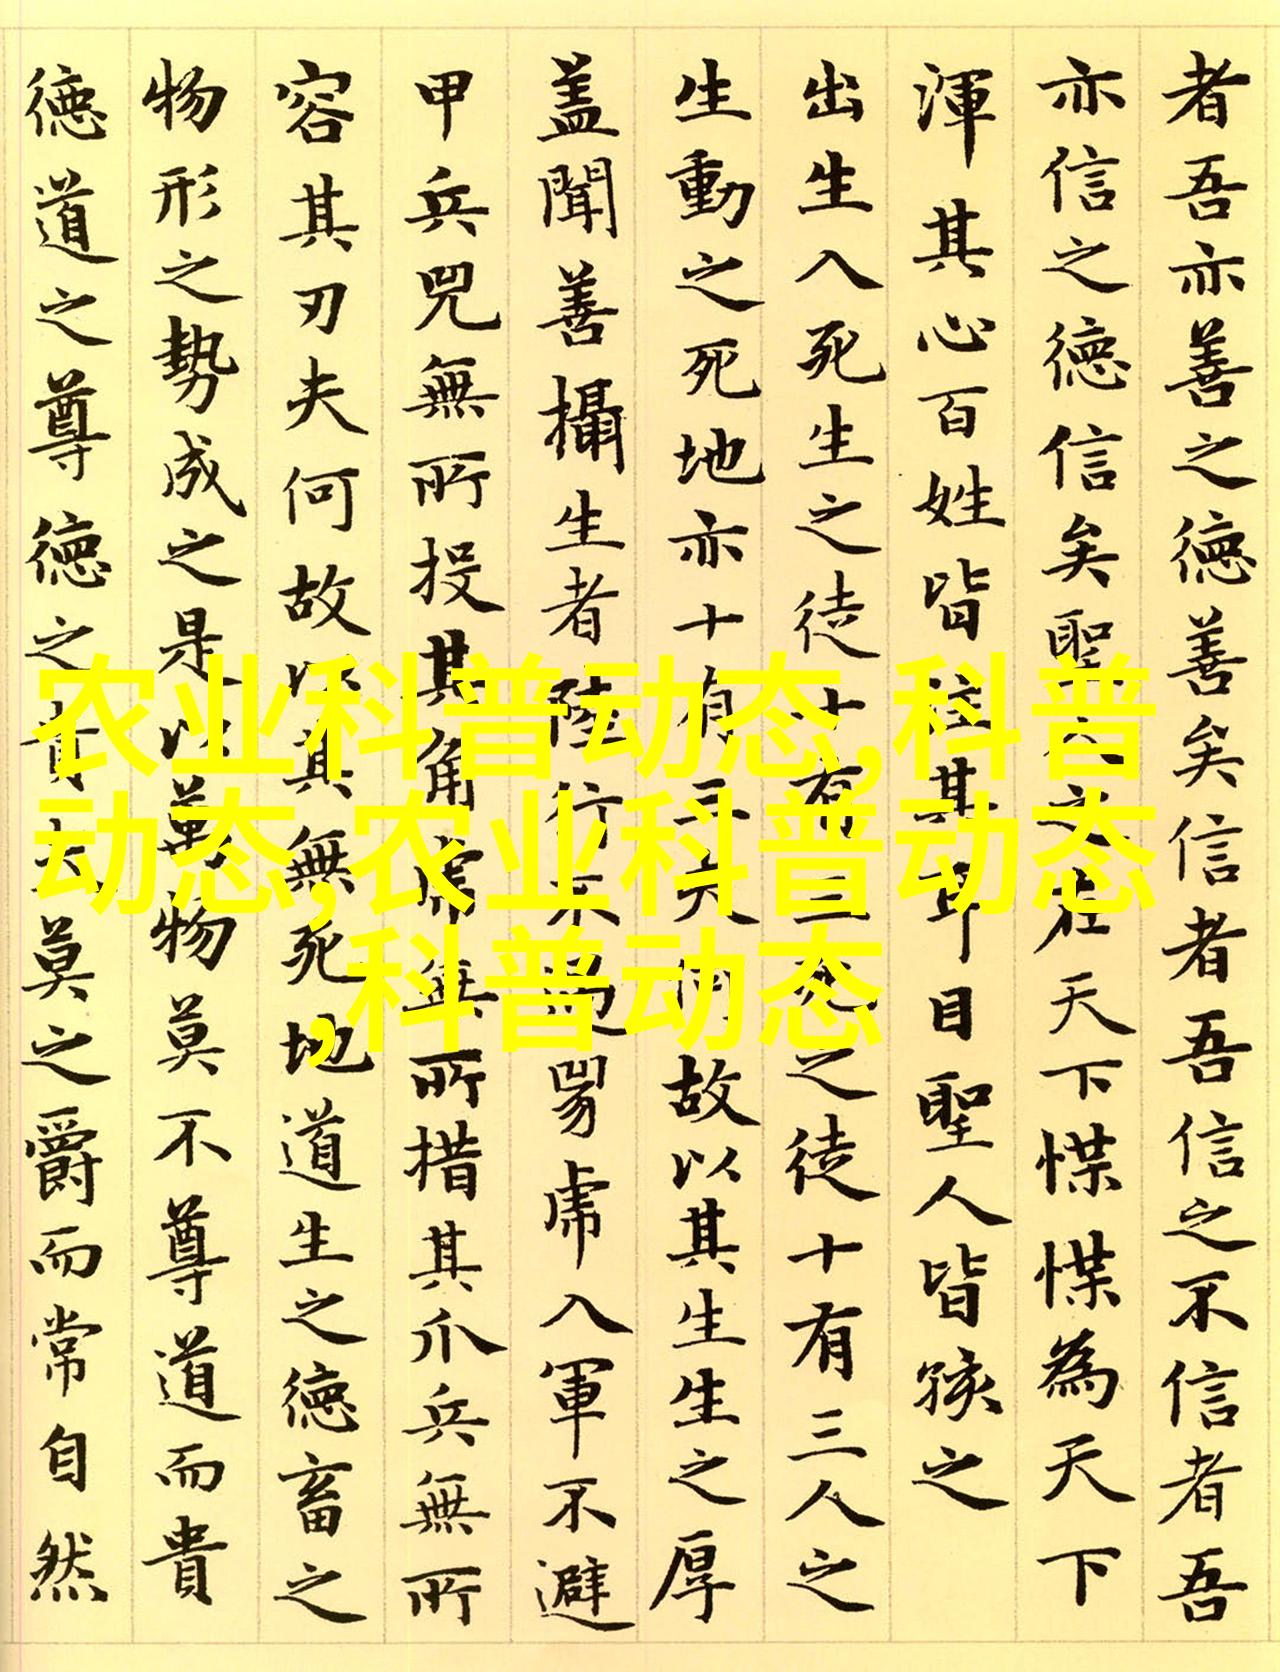 者吾亦善之德善矣信者吾信之不信者吾
亦信之德信矣聖人之在天下惵惵為天下
渾其心百姓皆注其耳目聖人皆孩之
出生入死生之徒十有三死之徒十有三人之
生動之死地亦十有三夫何故以其生生之厚
盖聞善攝生者陸行不遇兕虎入軍不避
甲兵兕無所投其角虎無所措其爪兵無所
容其刃夫何故以其無死地道生之德畜之
物形之勢成之是以萬物莫不尊道而貴
德道之尊德之貴夫莫之爵而常自然
农业科普动态,科普
动态,农业科普动态
,科普动态